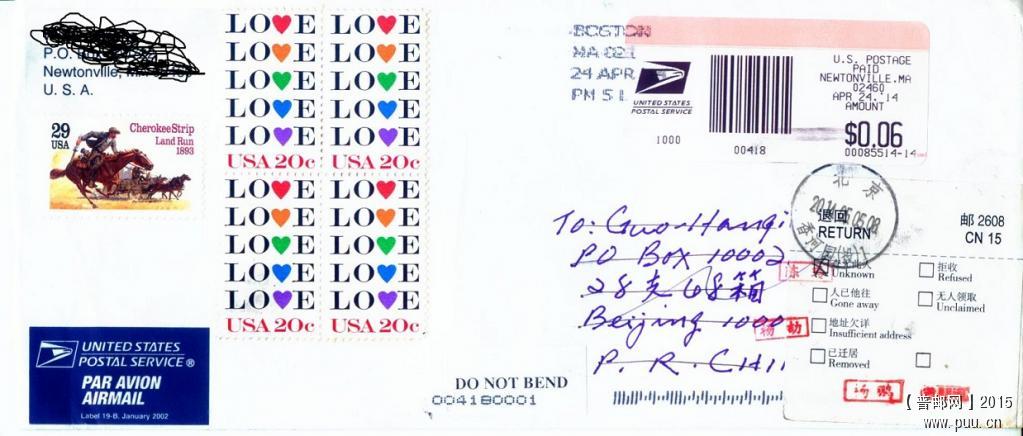 P.O.
Newtonville,
U. S. A.
29
USA
Cherokee Strip
Land Run
1893
LOVE LOVE
LOVE LOVE
LOVE LOVE
LOVE LOVE
LOVE LOVE
USA 20c USA 20c
LOVE LOVE
LOVE LOVE
LOVE LOVE
LOVE LOVE
LOVE LOVE
USA 20c USA 20c
BOSTON
MA 021
24 APR
PM 5 L
UNITED STATES
POSTAL SERVICE
1000
00418
U.S. POSTAGE
PAID
NEWTONVILLE.MA
02460
APR 24.'14
AMOUNT
$0.06
00085514-14
北京
2014.05.05.08
香河园(投)1
退回
RETURN
邮 2608
CN 15
To: Guo Hanqi
PO Box 10002
28支68箱
Beijing 1000
P. R. CHI
Unknown
拒收
Refused
人已他往
Gone away
无人领取
Unclaimed
地址欠详
Insufficient address
已迁居
Removed
杨勃
汤鹏
UNITED STATES
POSTAL SERVICE®
PAR AVION
AIRMAIL
Label 19-B, January 2002
DO NOT BEND
004180001
【普邮网】2015
www.puu.cn